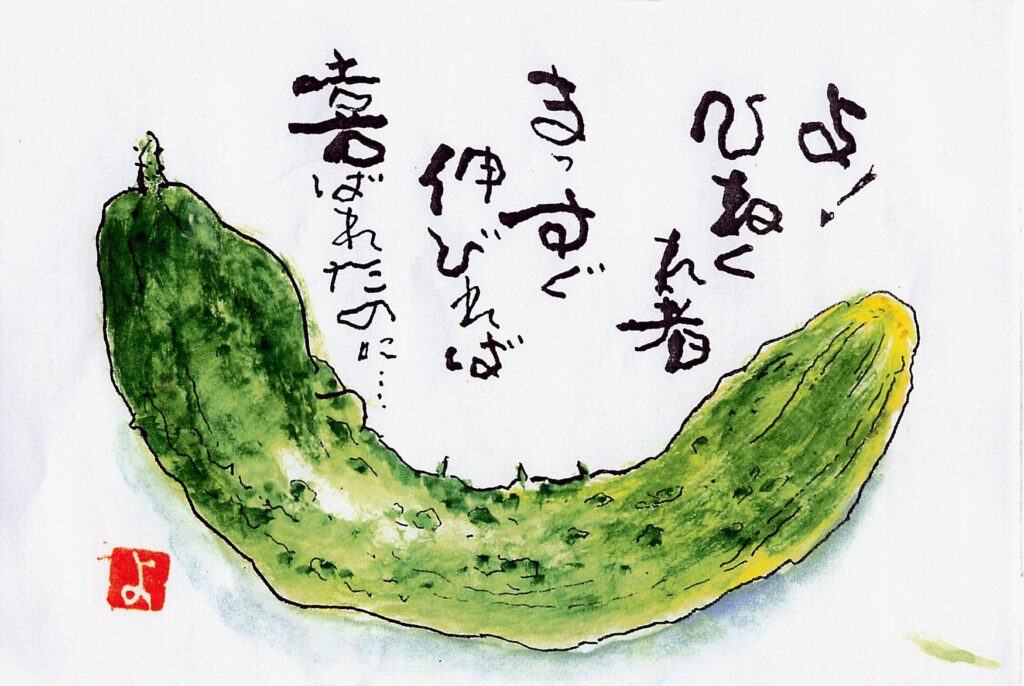 よ!
ひねく
れ者
まっ
すぐ
伸びれば
喜ばれたのに…
よ